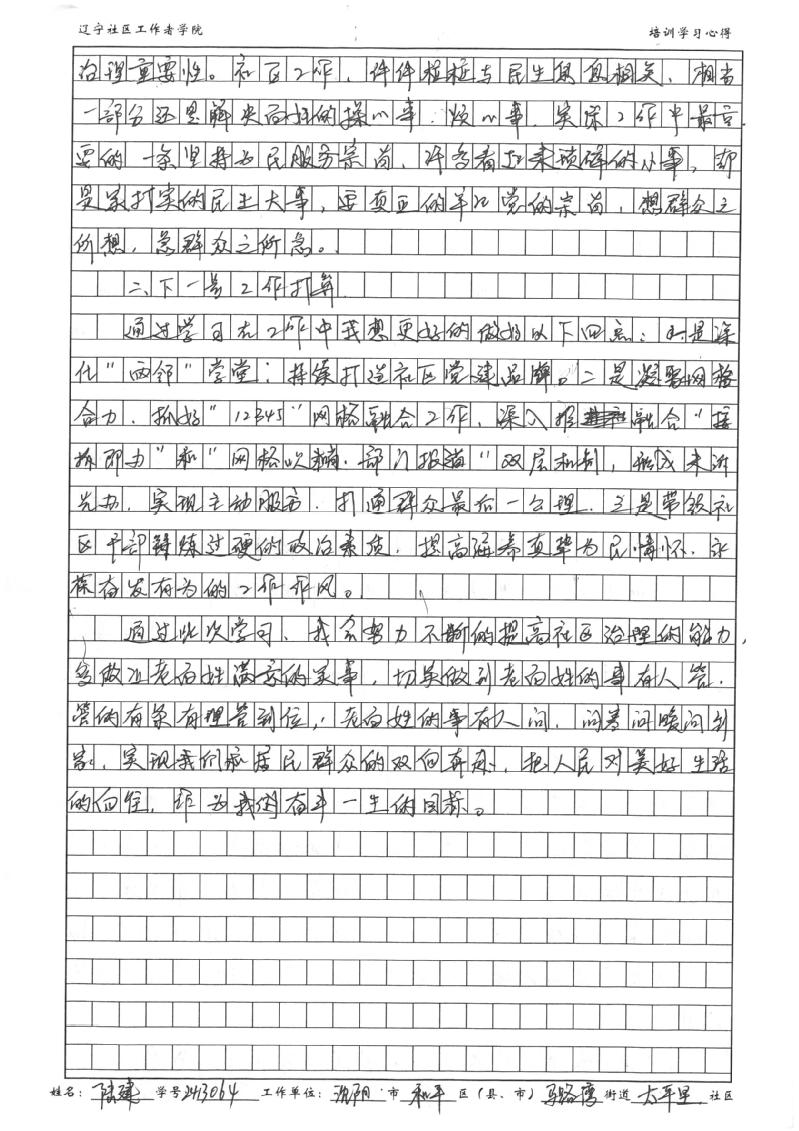 辽宁社区工作者学院 培训学习心得
治理重要性。社区工作，件件桩桩与民生息息相关，相当
一部分还是解决百姓的操心事、烦心事，实际工作中最重
要的一条坚持为民服务宗旨，许多看起来琐碎的小事，却
是实打实的民生大事，要真正的牢记党的宗旨，想群众之
所想，急群众之所急。
二、下一步工作打算
通过学习在工作中我想更好的做好以下四点：一是深
化“两邻”学堂；持续打造社区党建品牌。二是凝聚网格
合力，抓好“12345”网格融合工作，深入推融合“接
诉即办”和“网格吹哨·部门报道”双层机制，形成未诉
先办，实现主动服务，打通群众最后一公理，三是带领社
区干部锤练过硬的政治素质，提高涵养真挚为民情怀，永
葆奋发有为的工作作风。
通过此次学习，我会努力不断的提高社区治理的能力，
多做让老百姓满意的实事，切实做到老百姓的事有人管，
管的有条有理管到位，老百姓的事有人问，问寒问暖问到
家，实现我们和居民群众的双向奔赴，把人民对美好生活
的向往，作为我们奋斗一生的目标。
姓名：陆建 学号243064 工作单位：沈阳市和平区（县、市）马路湾街道太平里社区